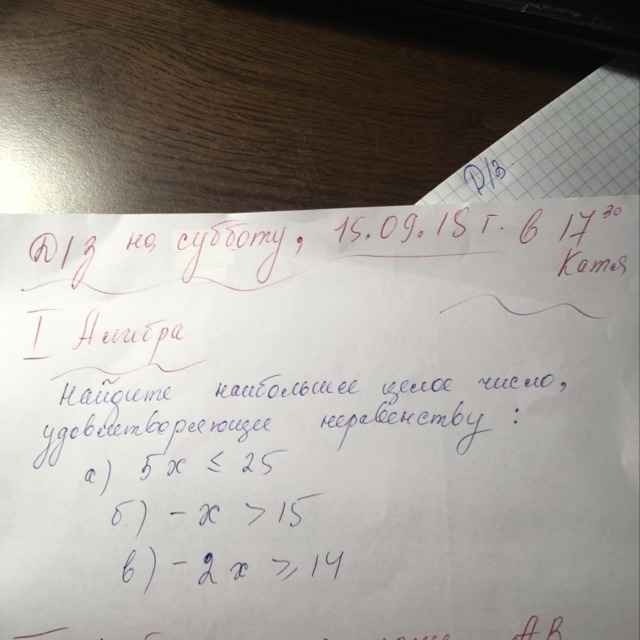 Д/з
Д/з на субботу, 15.09.18 г. в 17³⁰
Катя
I Алгебра
Найдите наибольшее целое число,
удовлетворяющее неравенству:
а) 5x ≤ 25
б) -x > 15
в) -2x ⩾ 14
AB